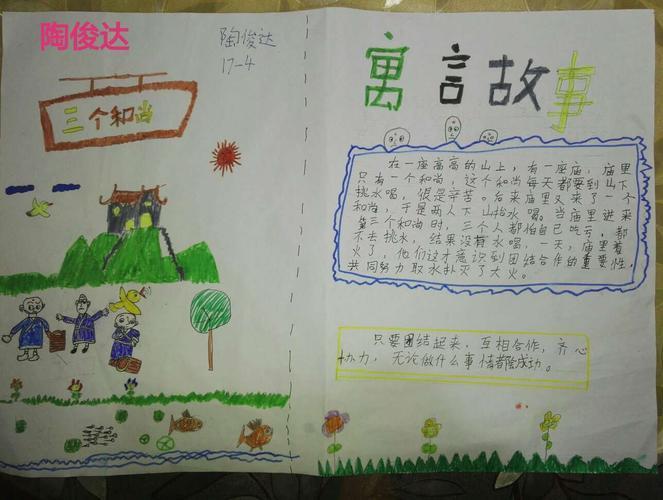 陶俊达
陶俊达
17-4
三个和尚
寓言故事
在一座高高的山上，有一座庙，庙里
只有一个和尚，这个和尚每天都要到山下
挑水喝，很是辛苦。后来庙里又来了一个
和尚，于是两人下山抬水喝。当庙里进来
第三个和尚时，三个人都怕自己吃亏，都
不去挑水，结果没有水喝，一天，庙里着
火了，他们这才意识到团结合作的重要性，
共同努力取水扑灭了大火。
只要团结起来，互相合作，齐心
协力，无论做什么事情都能成功。